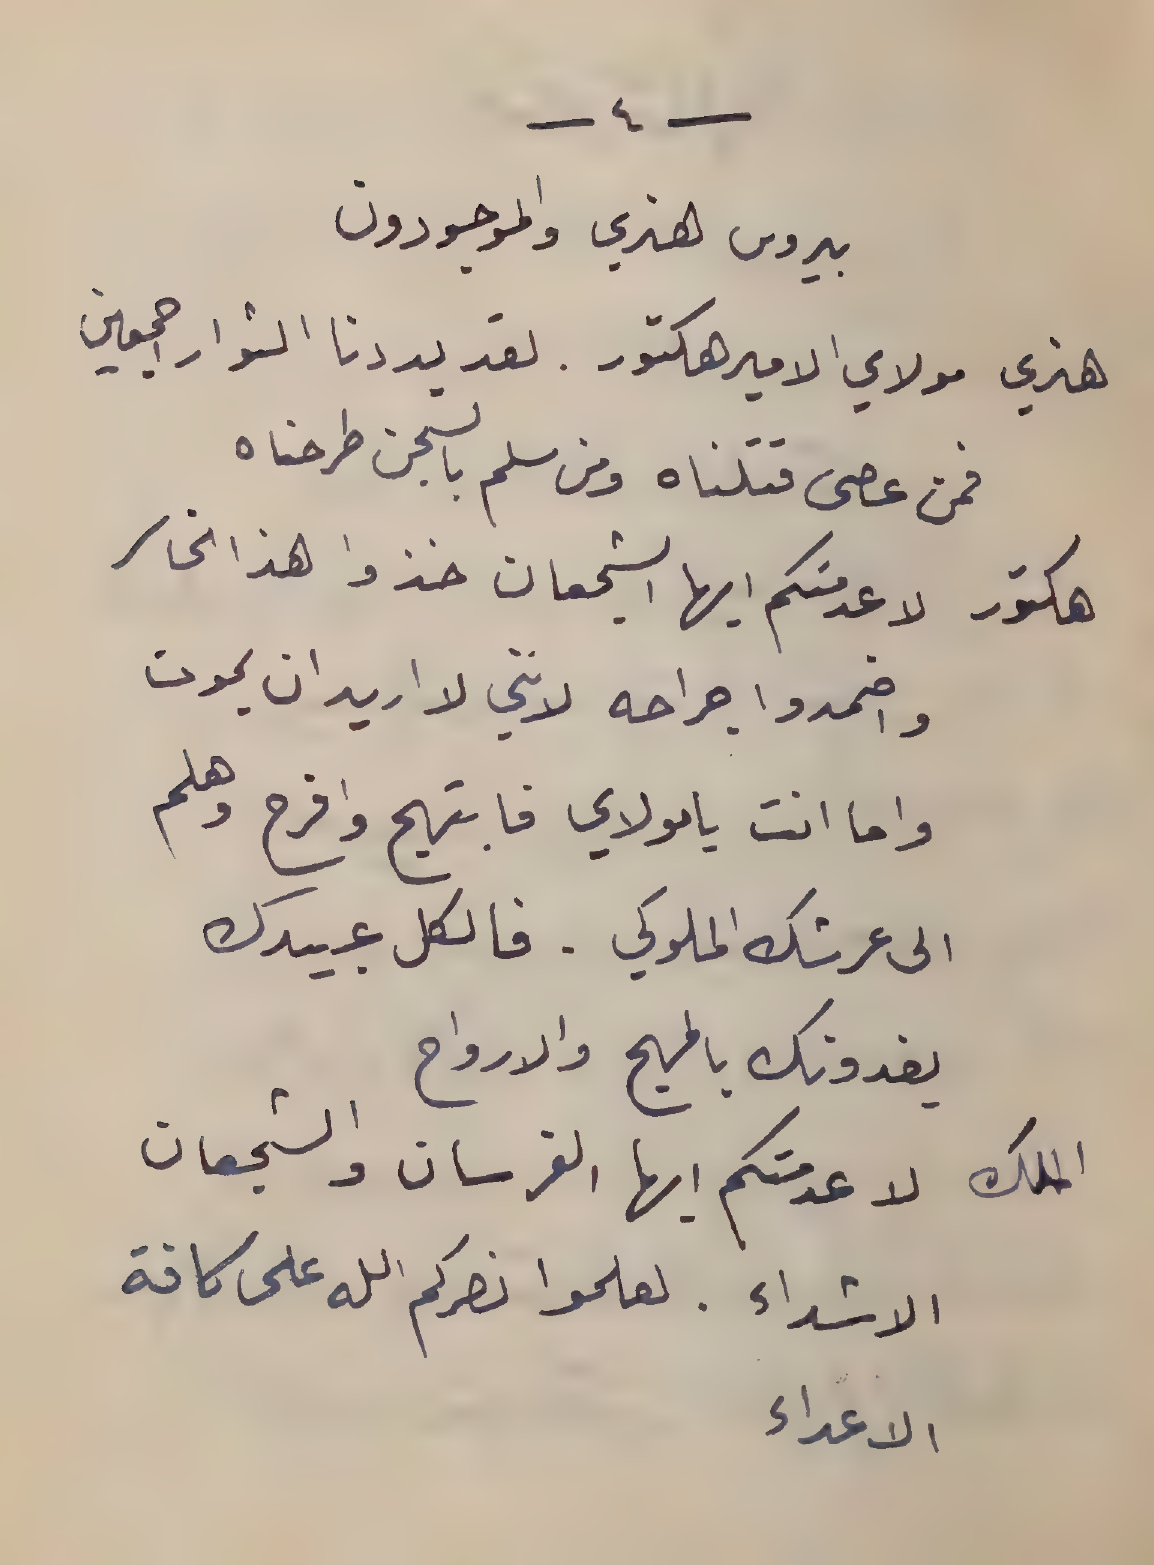 — ٤ —
بيروس هنري والموجودون
هنري مولاي الامير هكتور . لقد بددنا الثوار اجمعين
فمن عصى قتلناه ومن سلم بالسجن طرحناه
هكتور لا عدمتكم ايها الشجعان خذوا هذا الخاسر
واضمدوا جراحه لانني لا اريد ان يموت
واما انت يا مولاي فابتهج وافرح وهلم
الى عرشك الملوكي . فالكل عبيدك
يفدونك بالمهج والارواح
الملك لا عدمتكم ايها الفرسان والشجعان
الاشداء . لعلموا نصركم الله على كافة
الاعداء